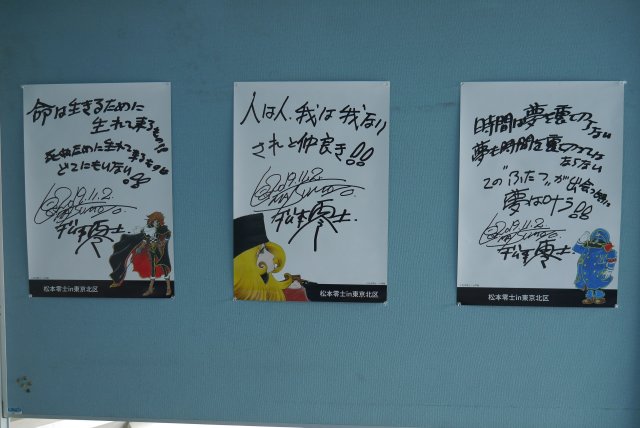 命は生きるために
生れて来るもの!!
死ぬために生れて来るもの
どこにもいない!!
2019.11.2.
松本零士
松本零士in東京北区
人は人、我は我なり
されど仲良き!!
2019.11.2
松本零士
松本零士in東京北区
時間は夢を裏切らない
夢も時間を裏切っては
ならない
この"ふたつ"が出会う時、
夢は叶う!!
2019.11.2
松本零士
松本零士in東京北区